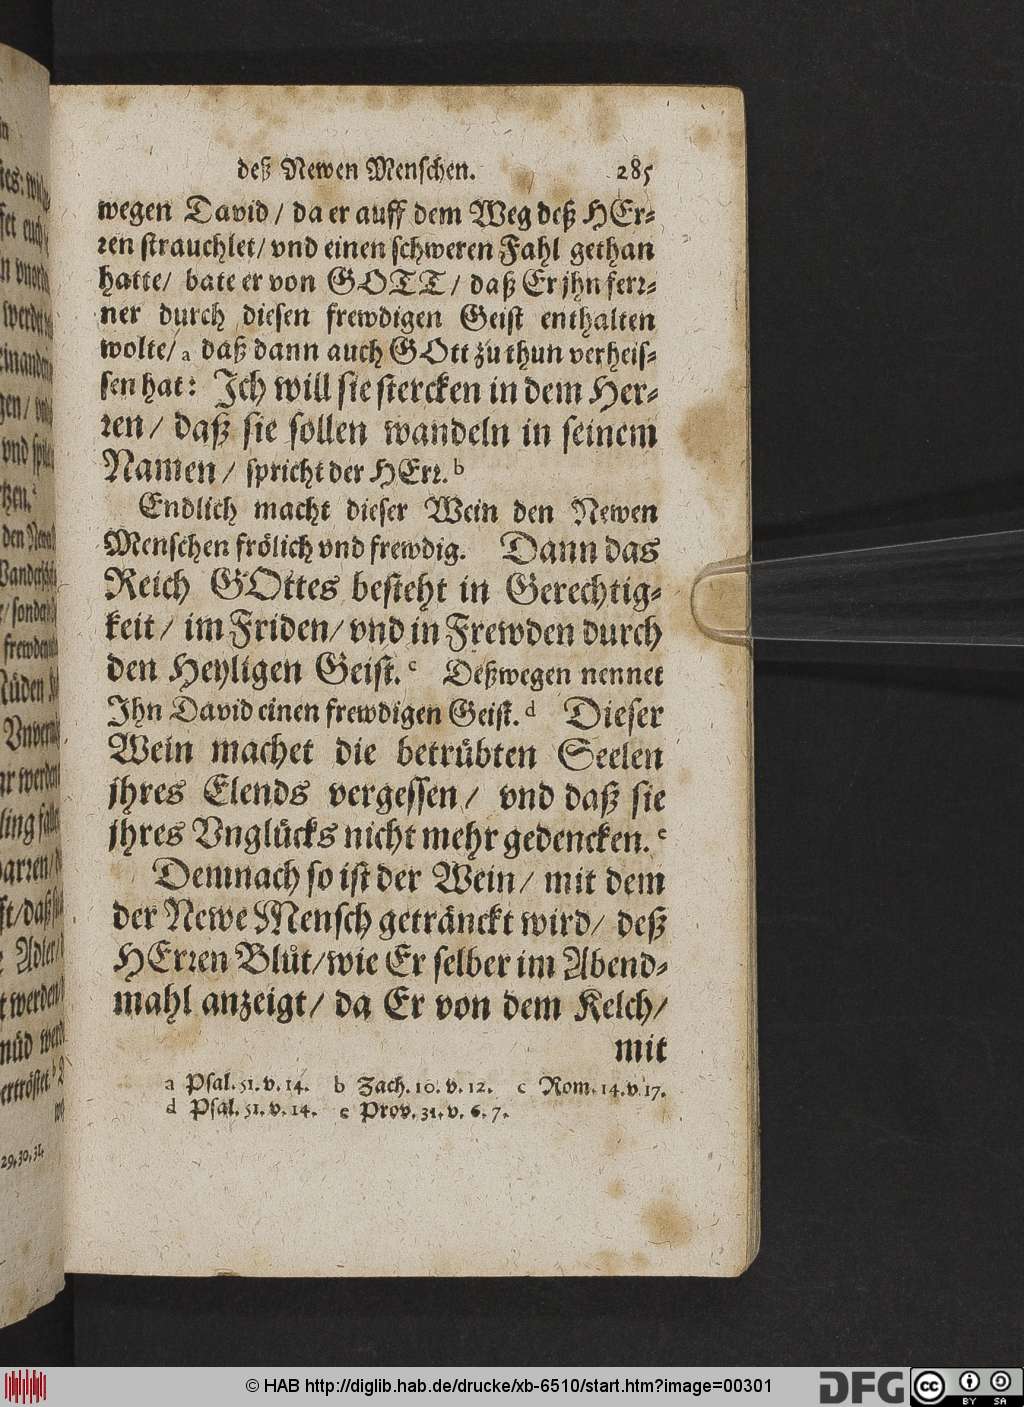 deß Newen Menschen. 285
wegen David / da er auff dem Weg deß HEr⸗
ren strauchlet / vnd einen schweren Fahl gethan
hatte / bate er von GOTT / daß Er jhn ferr⸗
ner durch diesen frewdigen Geist enthalten
wolte / a daß dann auch GOtt zu thun verheis⸗
sen hat: Jch will sie stercken in dem Her⸗
ren / daß sie sollen wandeln in seinem
Namen / spricht der HErr. b
Endlich macht dieser Wein den Newen
Menschen frölich vnd frewdig. Dann das
Reich GOttes besteht in Gerechtig⸗
keit / im Friden / vnd in Frewden durch
den Heyligen Geist. c Deßwegen nennet
Jhn David einen frewdigen Geist. d Dieser
Wein machet die betrübten Seelen
jhres Elends vergessen / vnd daß sie
jhres Vnglücks nicht mehr gedencken. e
Demnach so ist der Wein / mit dem
der Newe Mensch getränckt wird / deß
HErren Blůt / wie Er selber im Abend⸗
mahl anzeigt / da Er von dem Kelch /
mit
a Psal. 51. v. 14. b Zach. 10. v. 12. c Rom. 14. v 17.
d Psal. 51. v. 14. e Prov. 31. v. 6. 7.
29. 30. 31.
© HAB http://diglib.hab.de/drucke/xb-6510/start.htm?image=00301
DFG
cc BY SA